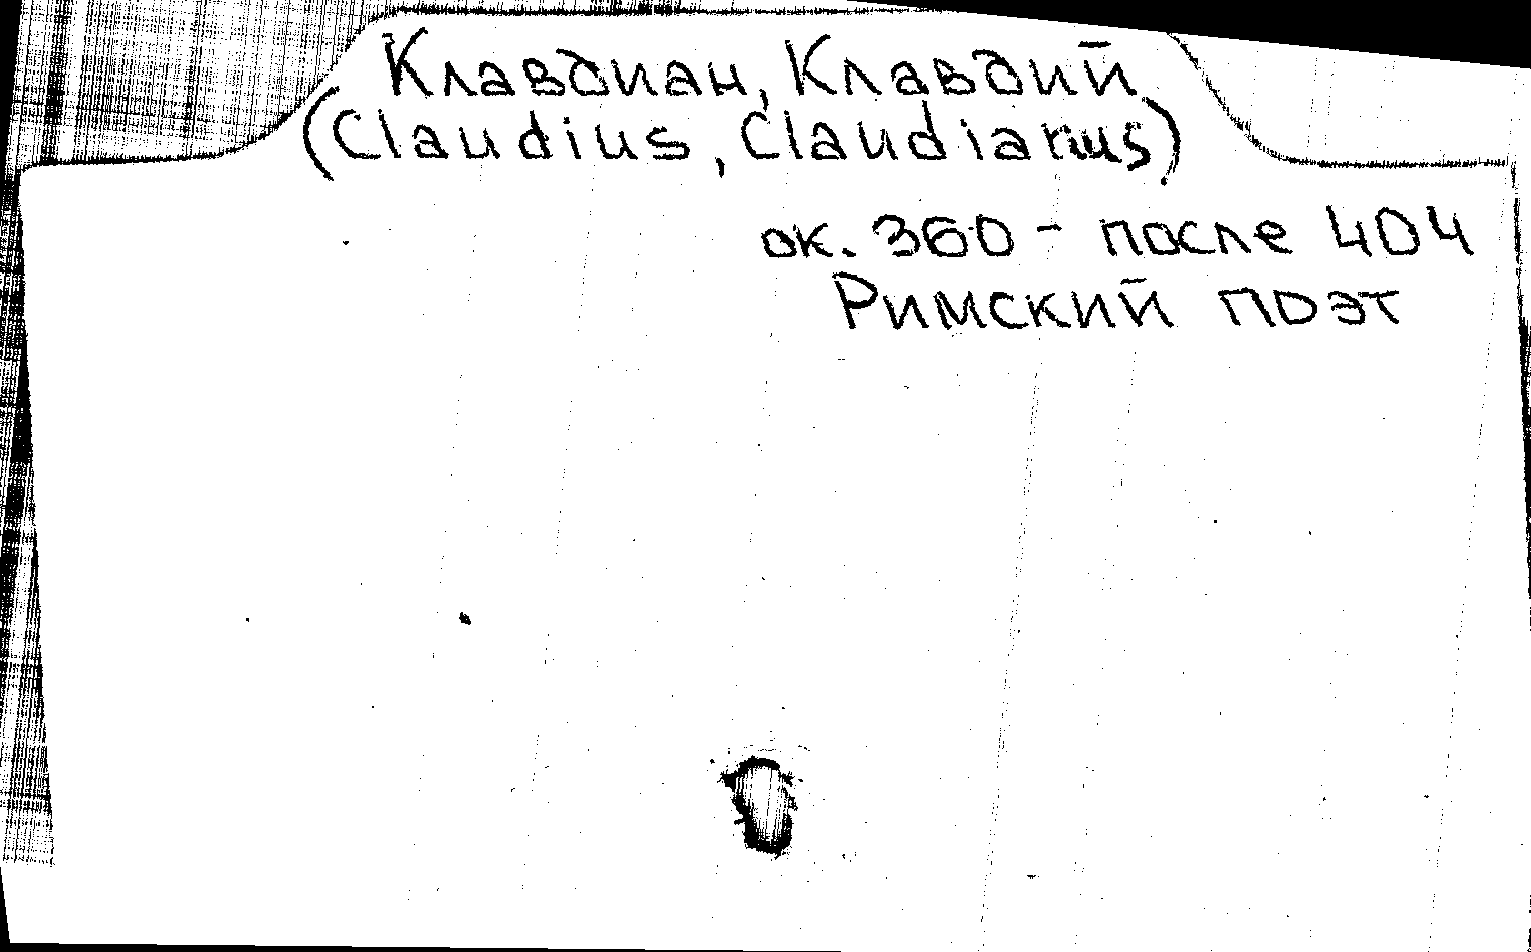 Клавдиан, Клавдий
(Claudius, Claudianus)
ок. 360 - после 404
Римский поэт